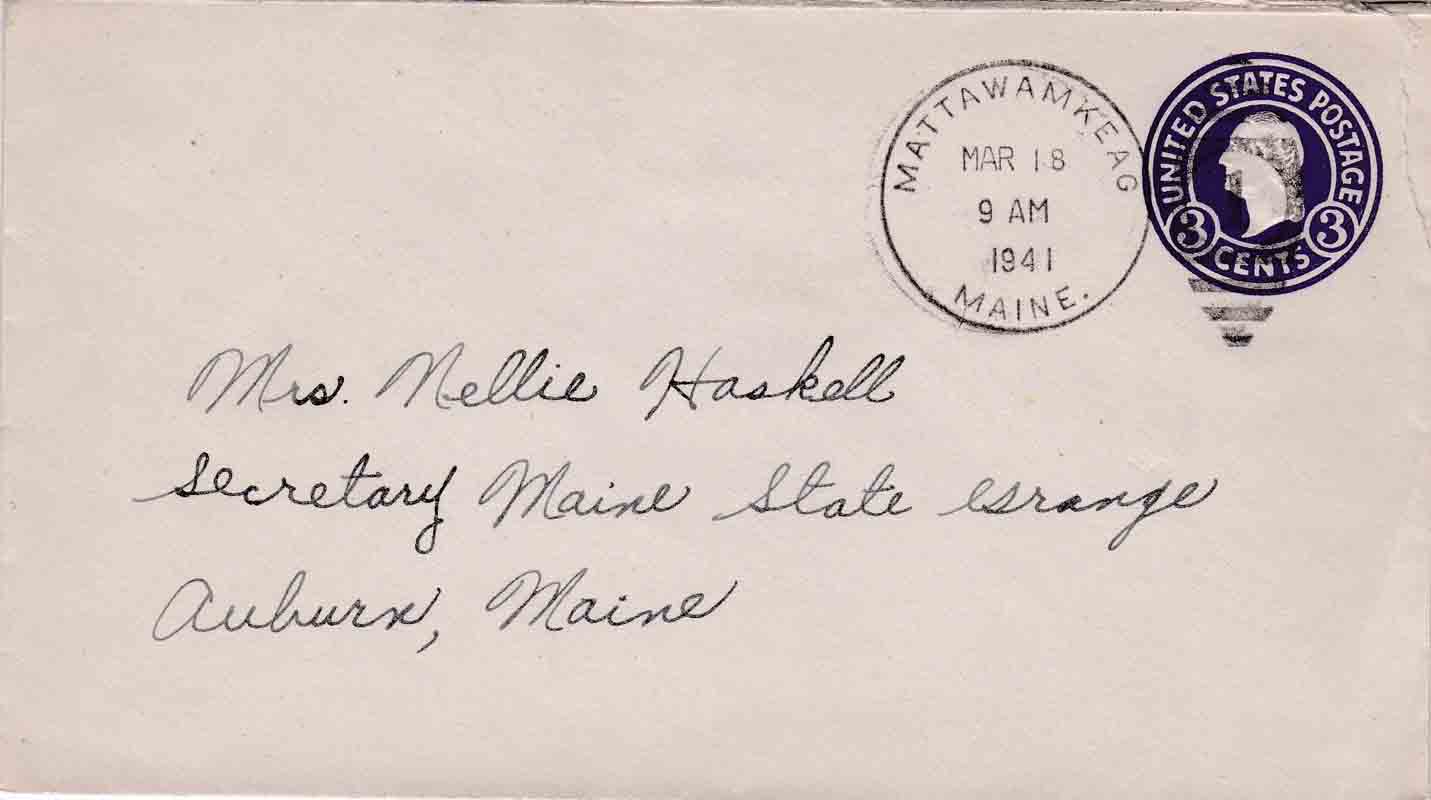 MATTAWAMKEAG
MAR 18
9 AM
1941
MAINE.
UNITED STATES POSTAGE
3 CENTS 3
Mrs. Nellie Haskell
Secretary Maine State Grange
Auburn, Maine